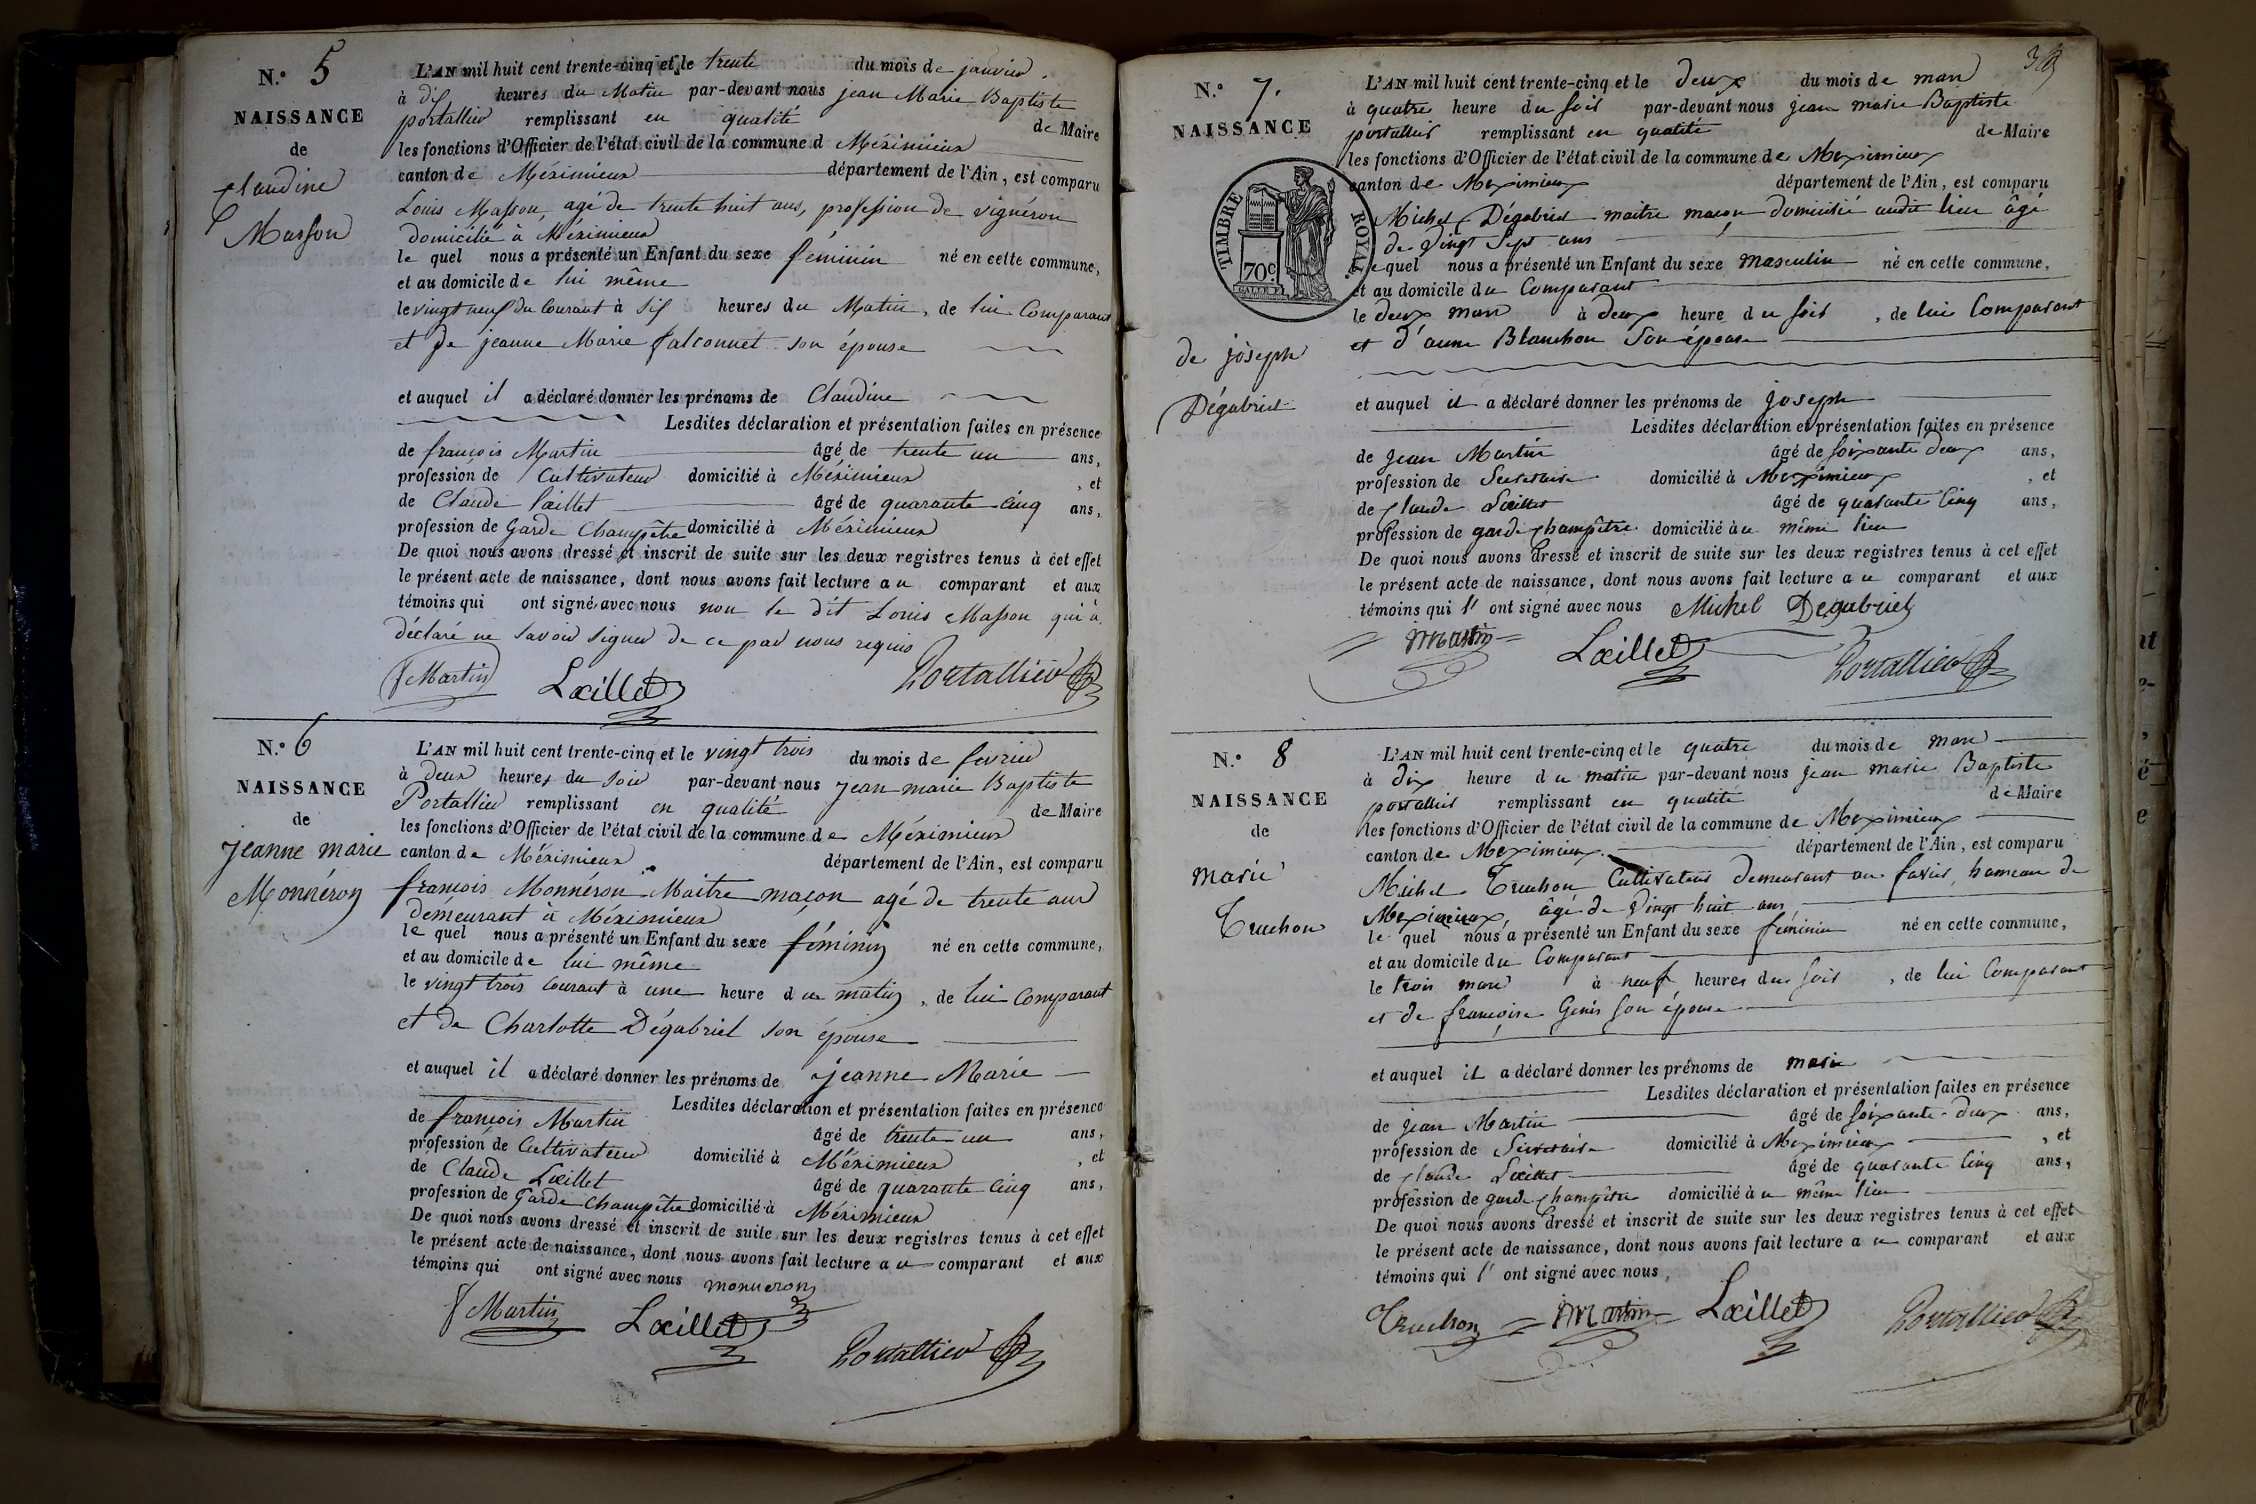 N.º 5
NAISSANCE
de
Claudine
Masson
L'AN mil huit cent trente-cinq et le trente du mois de janvier.
à dix heures du Matin par-devant nous jean Marie Baptiste
portallier remplissant en qualité de Maire
les fonctions d'Officier de l'état civil de la commune d Méximieux
canton de Méximieux département de l'Ain, est comparu
Louis Masson, agé de trente huit ans, profession de vignéron
domicilié à Méximieux
le quel nous a présenté un Enfant du sexe féminin né en cette commune,
et au domicile de lui même
le vingt neuf du Courant à six heures du Matin, de lui Comparant
et de jeanne Marie falconnet son épouse
et auquel il a déclaré donner les prénoms de Claudine
Lesdites déclaration et présentation faites en présence
de françois Martin âgé de trente un ans,
profession de Cultivateur domicilié à Méximieux, et
de Claude Lœillet âgé de quarante Cinq ans,
profession de Garde Champêtre domicilié à Méximieux
De quoi nous avons dressé et inscrit de suite sur les deux registres tenus à cet effet
le présent acte de naissance, dont nous avons fait lecture au comparant et aux
témoins qui ont signé avec nous non le dit Louis Masson qui a
déclaré ne savoir signer de ce par nous requis
f Martin Lœillet Portallier
N.º 6
NAISSANCE
de
jeanne marie
Monnéron
L'AN mil huit cent trente-cinq et le vingt trois du mois de fevrier
à deux heures du soir par-devant nous jean marie Baptiste
Portallier remplissant en qualité de Maire
les fonctions d'Officier de l'état civil de la commune de Méximieux
canton de Méximieux département de l'Ain, est comparu
françois Monnéron Maitre maçon agé de trente ans
demeurant à Méximieux
le quel nous a présenté un Enfant du sexe féminin né en cette commune,
et au domicile de lui même
le vingt trois Courant à une heure du matin, de lui Comparant
et de Charlotte Dégabriel son épouse
et auquel il a déclaré donner les prénoms de jeanne Marie
Lesdites déclaration et présentation faites en présence
de françois Martin âgé de trente un ans,
profession de Cultivateur domicilié à Méximieux, et
de Claude Lœillet âgé de quarante Cinq ans,
profession de Garde Champêtre domicilié à Méximieux
De quoi nous avons dressé et inscrit de suite sur les deux registres tenus à cet effet
le présent acte de naissance, dont nous avons fait lecture au comparant et aux
témoins qui ont signé avec nous monneron
f Martin Lœillet Portallier
N.º 7.
NAISSANCE
TIMBRE ROYAL.
70c
de joseph
Dégabriel
L'AN mil huit cent trente-cinq et le deux du mois de mars
à quatre heure du soir par-devant nous jean marie Baptiste
portallier remplissant en qualité de Maire
les fonctions d'Officier de l'état civil de la commune de Meximieux
canton de Meximieux département de l'Ain, est comparu
Michel Dégabriel maitre maçon domicilié audit lieu âgé
de vingt sept ans
lequel nous a présenté un Enfant du sexe masculin né en cette commune,
et au domicile du Comparant
le deux mars à deux heure du soir, de lui Comparant
et d'anne Blanchon son épouse
et auquel il a déclaré donner les prénoms de joseph
Lesdites déclaration et présentation faites en présence
de jean Martin âgé de soixante deux ans,
profession de Secretaire domicilié à Meximieux, et
de Claude Lœillet âgé de quarante Cinq ans,
profession de garde champêtre domicilié au même lieu
De quoi nous avons dressé et inscrit de suite sur les deux registres tenus à cet effet
le présent acte de naissance, dont nous avons fait lecture au comparant et aux
témoins qui l' ont signé avec nous Michel Degabriel
Martin Lœillet Portallier
N.º 8
NAISSANCE
de
marie
Truchon
L'AN mil huit cent trente-cinq et le quatre du mois de mars
à dix heure du matin par-devant nous jean marie Baptiste
portallier remplissant en qualité de Maire
les fonctions d'Officier de l'état civil de la commune de Meximieux
canton de Meximieux département de l'Ain, est comparu
Michel Truchon Cultivateur demeurant au hameau de
Meximieux, âgé de vingt huit ans
le quel nous a présenté un Enfant du sexe féminin né en cette commune,
et au domicile du Comparant
le trois mars à neuf heures du soir, de lui Comparant
et de françoise Genis son épouse
et auquel il a déclaré donner les prénoms de marie
Lesdites déclaration et présentation faites en présence
de jean Martin âgé de soixante-deux ans,
profession de Secretaire domicilié à Meximieux, et
de Claude Lœillet âgé de quarante Cinq ans,
profession de garde champêtre domicilié au même lieu
De quoi nous avons dressé et inscrit de suite sur les deux registres tenus à cet effet
le présent acte de naissance, dont nous avons fait lecture au comparant et aux
témoins qui l' ont signé avec nous,
Truchon Martin Lœillet Portallier